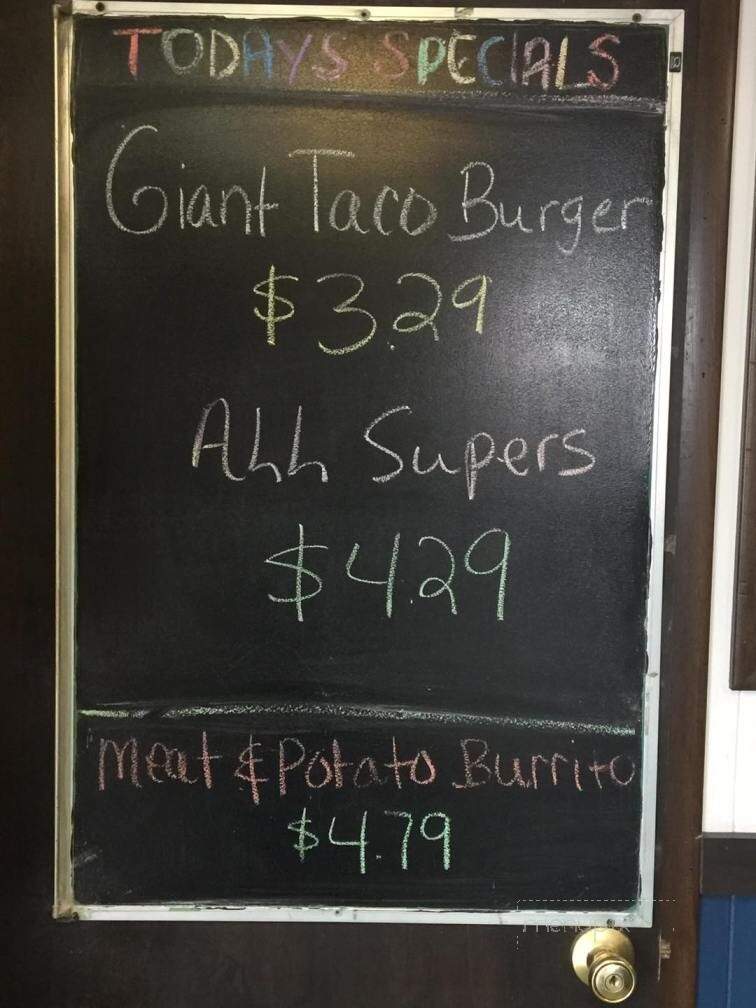 TODAYS SPECIALS
Giant Taco Burger
$3.29
All Supers
$4.29
Meat & Potato Burrito
$4.79